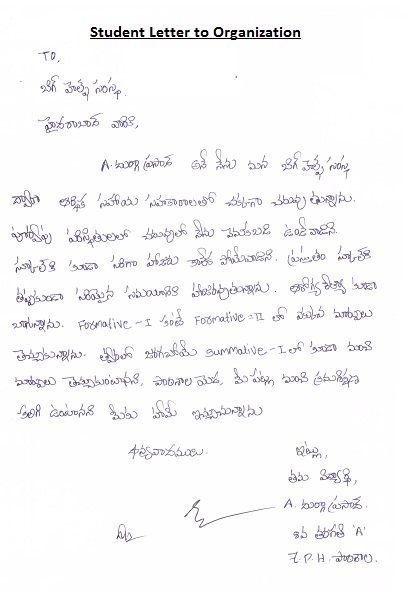 Student Letter to Organization
TO,
బిగ్ హెల్ప్ సంస్థ.
హైదరాబాద్ వారికి,
A. దుర్గా ప్రసాద్ అనే నేను మన బిగ్ హెల్ప్ సంస్థ
ద్వారా ఆర్థిక సహాయ సహకారాలతో చక్కగా చదువు తున్నాను.
పరిస్థితులలో చదువులో నేను వెనుకబడి ఉండేవాడిని.
స్కూల్ కి కూడా సరిగా హాజరు కాలేక పోయేవాడిని. ప్రస్తుతం స్కూల్ కి
తప్పకుండా సరియైన సమయానికి హాజరవుతున్నాను. ఆరోగ్య కూడా
బాగున్నాను. Formative - I కంటే Formative = II లో మార్కులు
తెచ్చుకున్నాను. త్వరలో జరగబోయే Summative - I లో కూడా మంచి
మార్కులు తెచ్చుకుంటానని, పాఠశాల యెడ, మీ పట్ల మంచి క్రమశిక్షణ
కలిగి ఉంటానని మీకు హామీ ఇస్తున్నాను
ధన్యవాదములు.
ఇట్లు,
తమ విద్యార్థి,
A. దుర్గా ప్రసాద్.
తరగతి 'A'
Z. P. H. పాఠశాల.